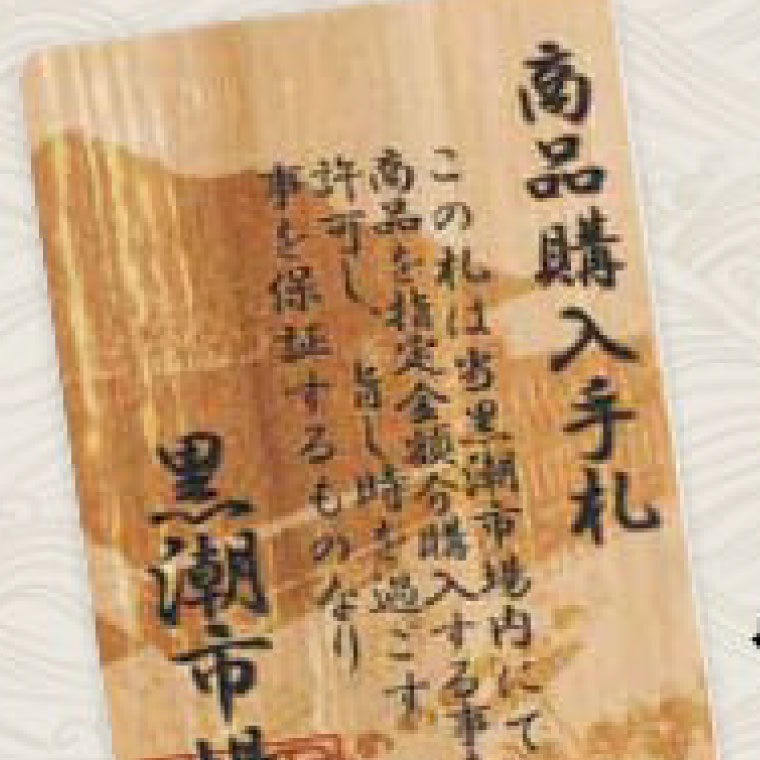 商品購入手札
この札は当黒潮市場内にて
商品を指定金額分購入する事
許可し、旨し時を過ごす
事を保証するものなり
黒潮市場